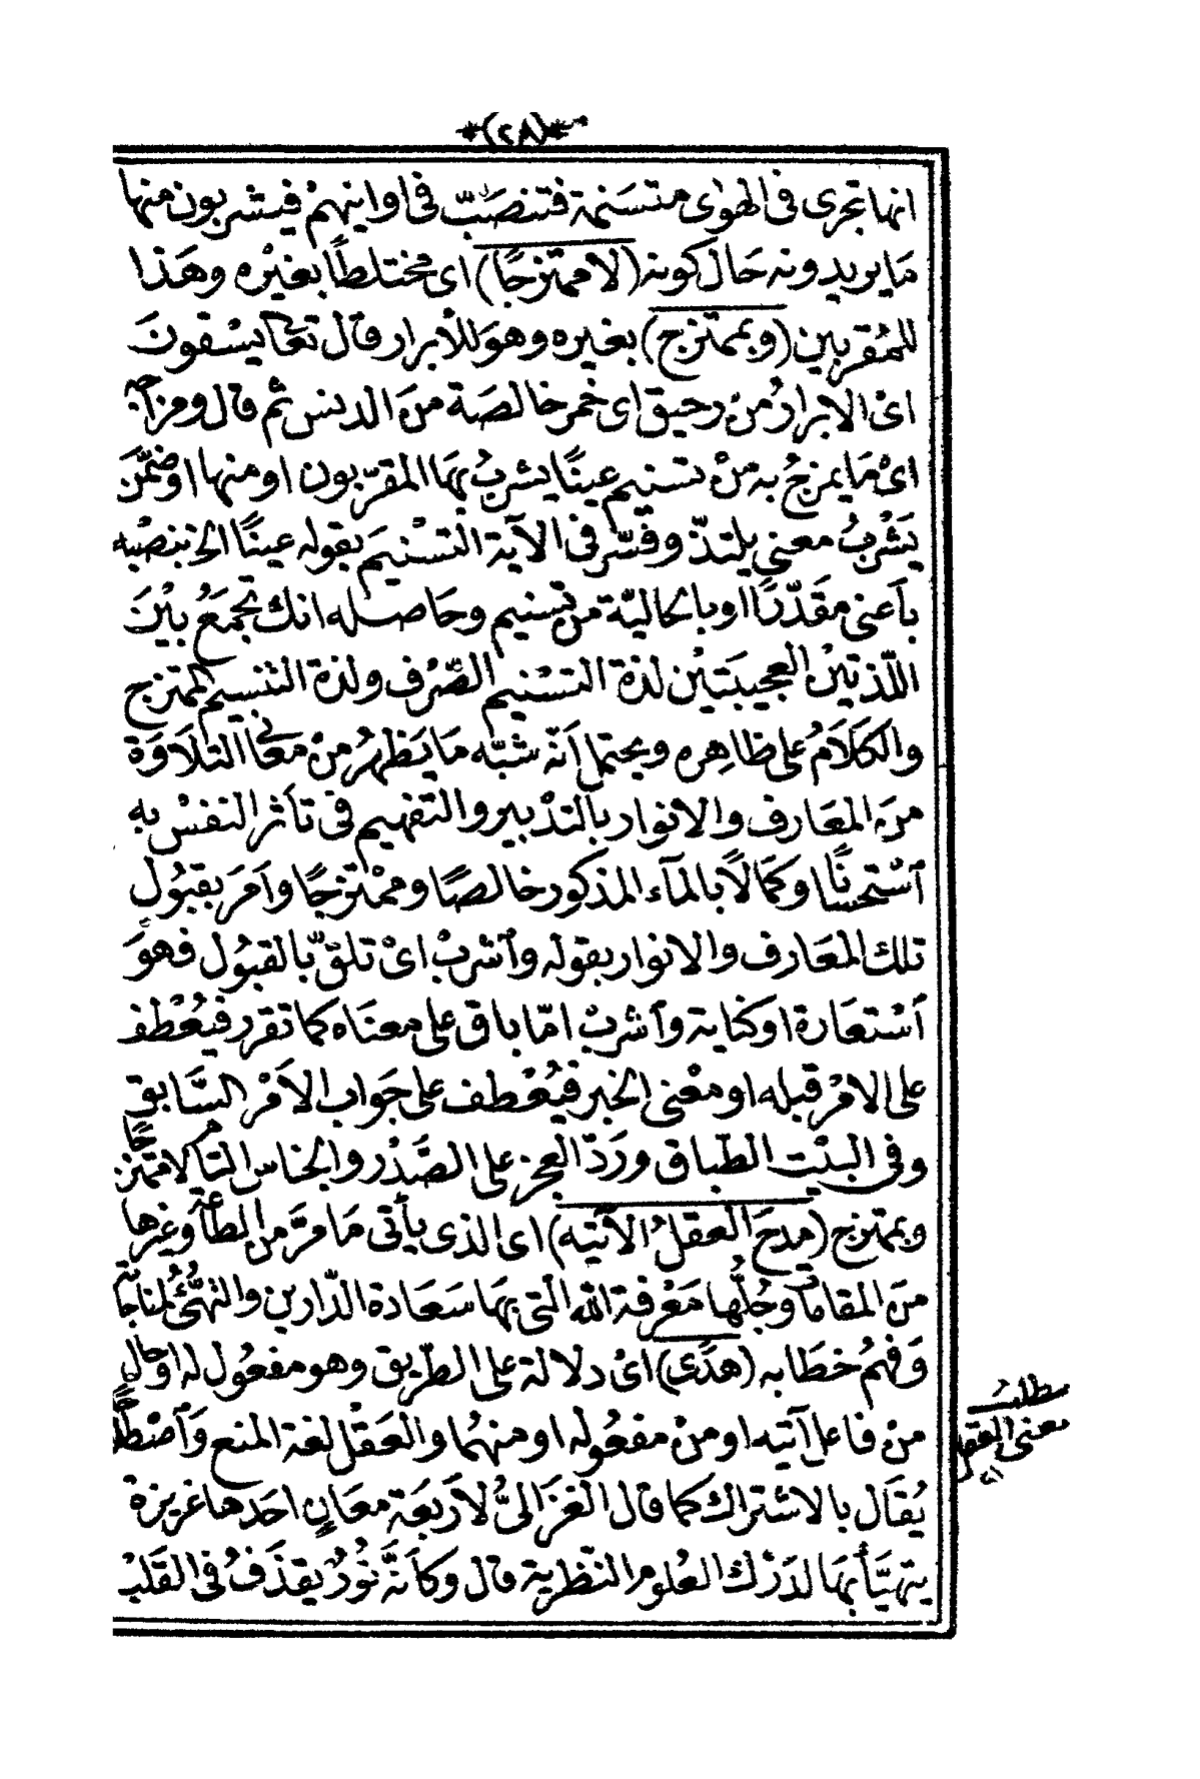 *(٢٨)*
انها تجرى فى الهوٰى متسَنمة فتنصَبّ فى اوانيهمْ فيشربون منها
مَا يريدونه حَال كونه (لا ممتزجًا) اى مختلطًا بغيْره وهَذا
للمُقربين (وبممتزج) بغيره وهوَ للأبرار قال تعَالى يسْقونَ
اىْ الابرارُ منْ رحيق اى خمر خالصَة منَ الدنس ثم قال ومزاجه
اىْ مَا يمزجُ به منْ تسنيم عينًا يشربُ بهَا المقرّبون او منها اوضمَّنَ
يَشْربُ معنى يلتذّ وفسّر فى الآية التسْنيمَ بقوله عينًا الخ بنصْبه
بأَعنى مقَدّرًا او بالحاليّة منْ تسنيم وحَاصله انك تجمَعُ بيْنَ
اللّذتيْن العجيبَتيْن لذة التسْنيم الصّرْف ولذة التنسيم الممتزج
والكلَامُ على ظاهِره ويحتمل أنّه شبّه مَا يَظهرُ منْ معانى التلَاوَة
منَ المعَارف والانوار بالتدْبير والتفهيم فى تأثر النفسْ به
ٱسْتحسانًا وكمَالًا بالمآء المذكور خالصًا وممْتزجًا وأمَرَ بقبُول
تلك المعَارف والانوار بقوله وٱشربْ اىْ تلقّ بالقبُول فهوَ
ٱسْتعَارة او كناية وٱشربْ امّا باق على معنَاه كما تقرر فيُعْطف
على الامْر قبله او معْنى الخبر فيُعْطف على جَواب الأمْر السَّابق
وفى البيْت الطّباق وَرَدّ العجز على الصَّدْر والجناس التام كلا ممتزجًا
وبممتزج (مِدحَ العقلُ الآتيه) اى الذى يأتى مَا مرَّ من الطاعة وغيرها
منَ المقامات وجُلّها مَعْرفة الله التى بهَا سَعَادة الدّارين والتهيّئ لمناجاته
وَفهمُ خطَابه (هدًى) اىْ دلالة على الطّريق وهو مفعُول له او حال
منْ فاعل آتيه او منْ مفعُوله او منهُما والعَقْل لغة المنع وَٱصْطلَاحًا
يُقَال بالاشتراك كما قال الغَزَالىُّ لأَربَعَة معَانٍ احَدها غريزة
يتهيَّأ بهَا لدَرْك العُلوم النّظرية قال وكأنَّه نُورٌ يقذَفُ فى القَلبْ
مطلب
معنى العقل